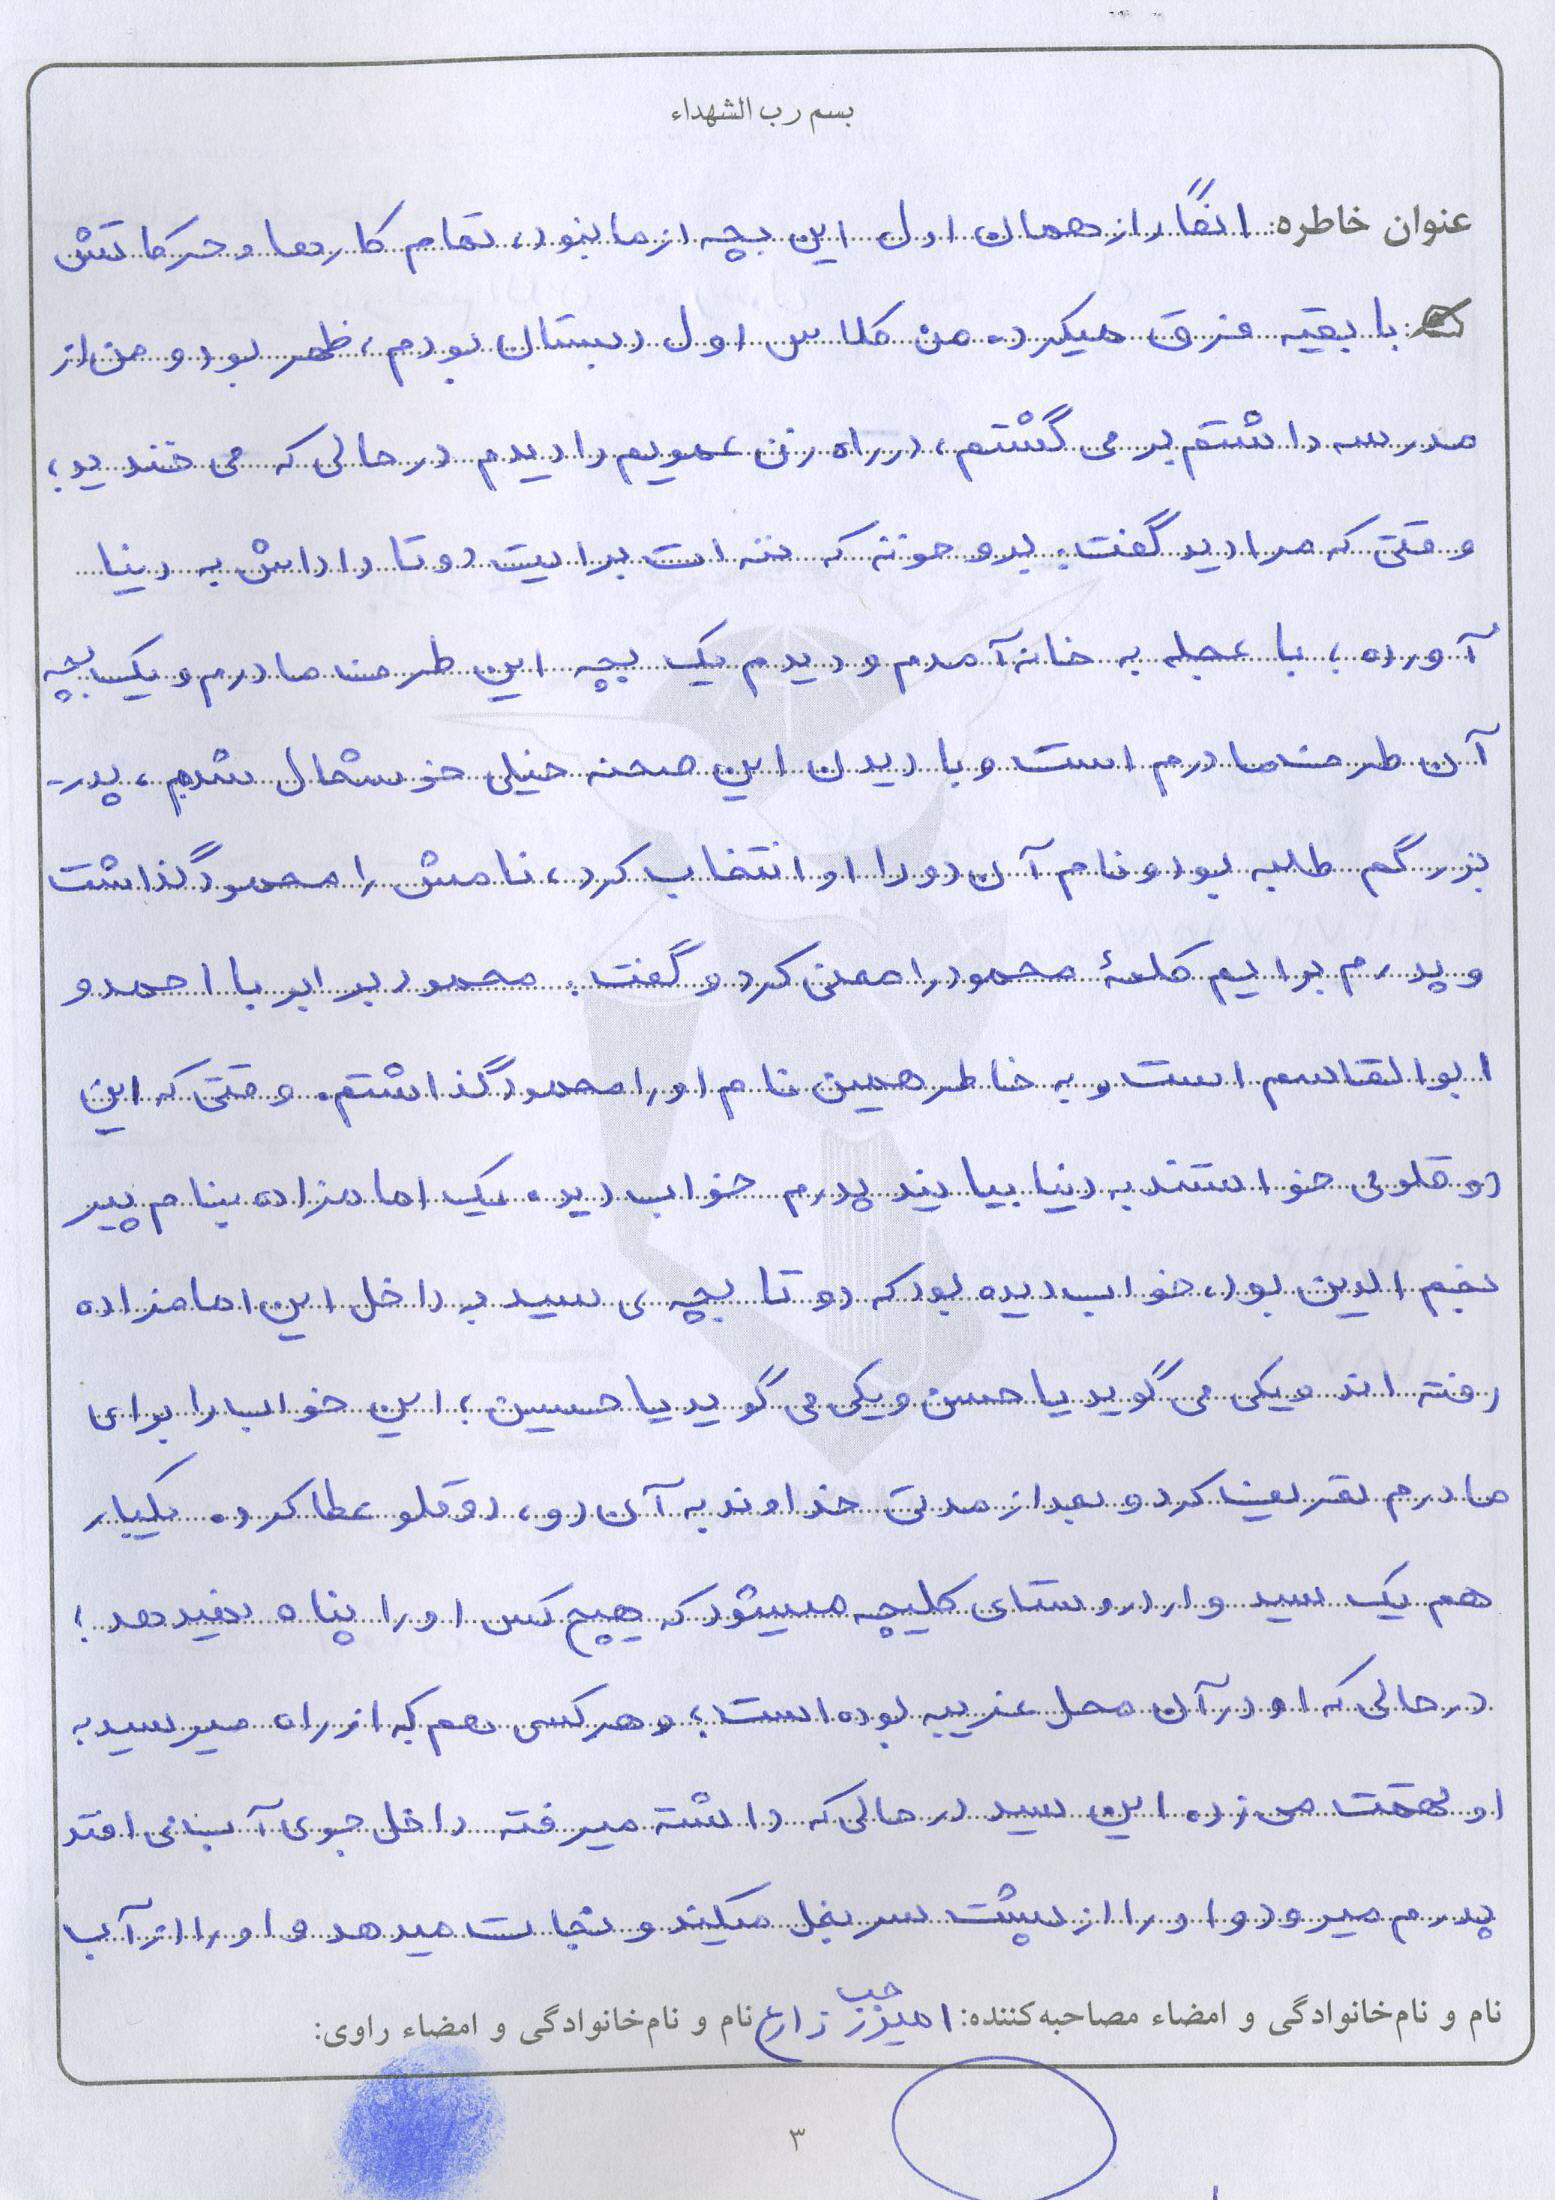 بسم رب الشهداء
عنوان خاطره: اتفاقاً از همان اول این بچه از ما نبود، تمام کارها و حرکاتش
با بقیه فرق میکرد. من کلاس اول دبستان بودم، ظهر بود و من از
مدرسه داشتم بر می گشتم، در راه زن عمویم را دیدم در حالی که می خندید؛
وقتی که مرا دید گفت: برو خونه که ننه ات برایت دوتا داداش به دنیا
آورده؛ با عجله به خانه آمدم و دیدم یک بچه این طرف مادرم و یک بچه
آن طرف مادرم است و با دیدن این صحنه خیلی خوشحال شدم، پدر-
بزرگم طلبه بود و نام آن دو را او انتخاب کرد، نامش را محمود گذاشت
و پدرم برایم کلمهٔ محمود را معنی کرد و گفت: محمود برابر با احمد و
ابوالقاسم است و به خاطر همین نام او را محمود گذاشتم. وقتی که این
دوقلو می خواستند به دنیا بیایند پدرم خواب دید. یک امامزاده بنام پیر
نجم الدین بود، خواب دیده بود که دو تا بچه ی سید به داخل این امامزاده
رفته اند و یکی می گوید یا حسن و یکی می گوید یا حسین؛ این خواب را برای
مادرم تعریف کرد و بعد از مدتی خداوند به آن دو، دوقلو عطا کرد. یکبار
هم یک سید وارد روستای کلیچه میشود که هیچ کس او را پناه نمیدهد؛
در حالی که او در آن محل غریبه بوده است؛ و هر کسی هم که از راه میرسید به
او تهمت می زده این سید در حالی که داشته میرفته داخل جوی آب می افتد
پدرم میرود و او را از پشت سر بغل میکند و نجات میدهد و او را از آب
نام و نام‌خانوادگی و امضاء مصاحبه‌کننده: زارع نام و نام‌خانوادگی و امضاء راوی:
۳